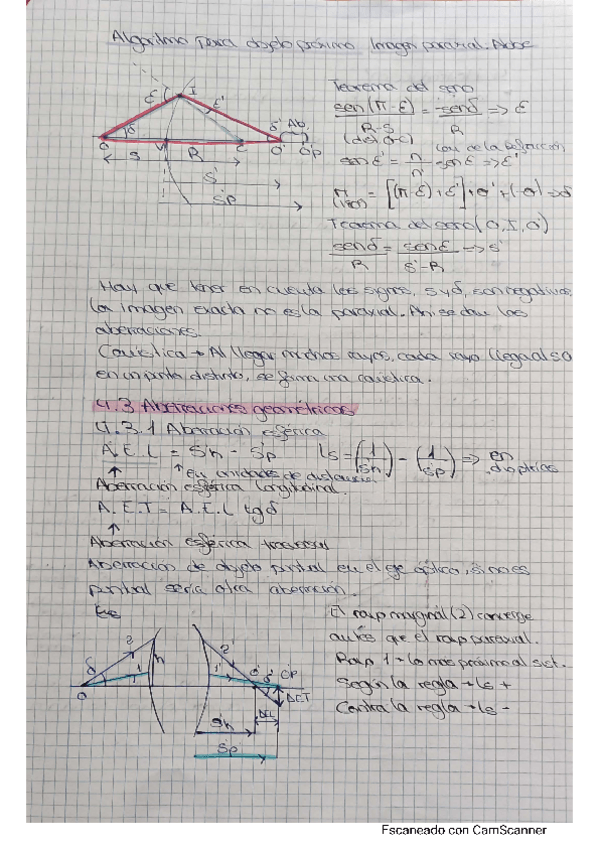 Algoritmo para objeto próximo Imagen paraxial. Abbe
Teorema del seno
sen(π-ε) = senδ => ε
R-S R
(de I O C)
Ley de la Refracción
senε' = n/n' senε => ε'
π = [(π-ε)+ε']+δ'+(-δ) => δ'
Teorema del seno (O, I, O')
senδ' = senε' => S'
R S'-R
ε I ε'
δ δ' Ab.
O V C O' O'p
S R
S'
S'p
Hay que tener en cuenta los signos, S y δ, son negativos.
La imagen exacta no es la paraxial. Ahí se dan las
aberraciones.
Caústica → Al llegar muchos rayos, cada rayo llega al s.o
en un punto distinto, se forma una caústica.
4.3 Aberraciones geométricas
4.3.1 Aberración esférica
A.E.L = S'h - S'p ls = (1/S'h) - (1/S'p) => en dioptrías
↑ ↑ en unidades de distancia
Aberración esférica longitudinal.
A.E.T = A.E.L tgδ'
↑
Aberración esférica trasversal
Aberración de objeto puntual en el eje óptico, si no es
puntual sería otra aberración.
El rayo marginal (2) converge
antes que el rayo paraxial.
Rayo 1 → lo más próximo al sist.
Según la regla → ls +
Contra la regla → ls -
2 h 2'
δ 1 1' O' δ' O'p
O AET
AEL
S'h
S'p
Escaneado con CamScanner